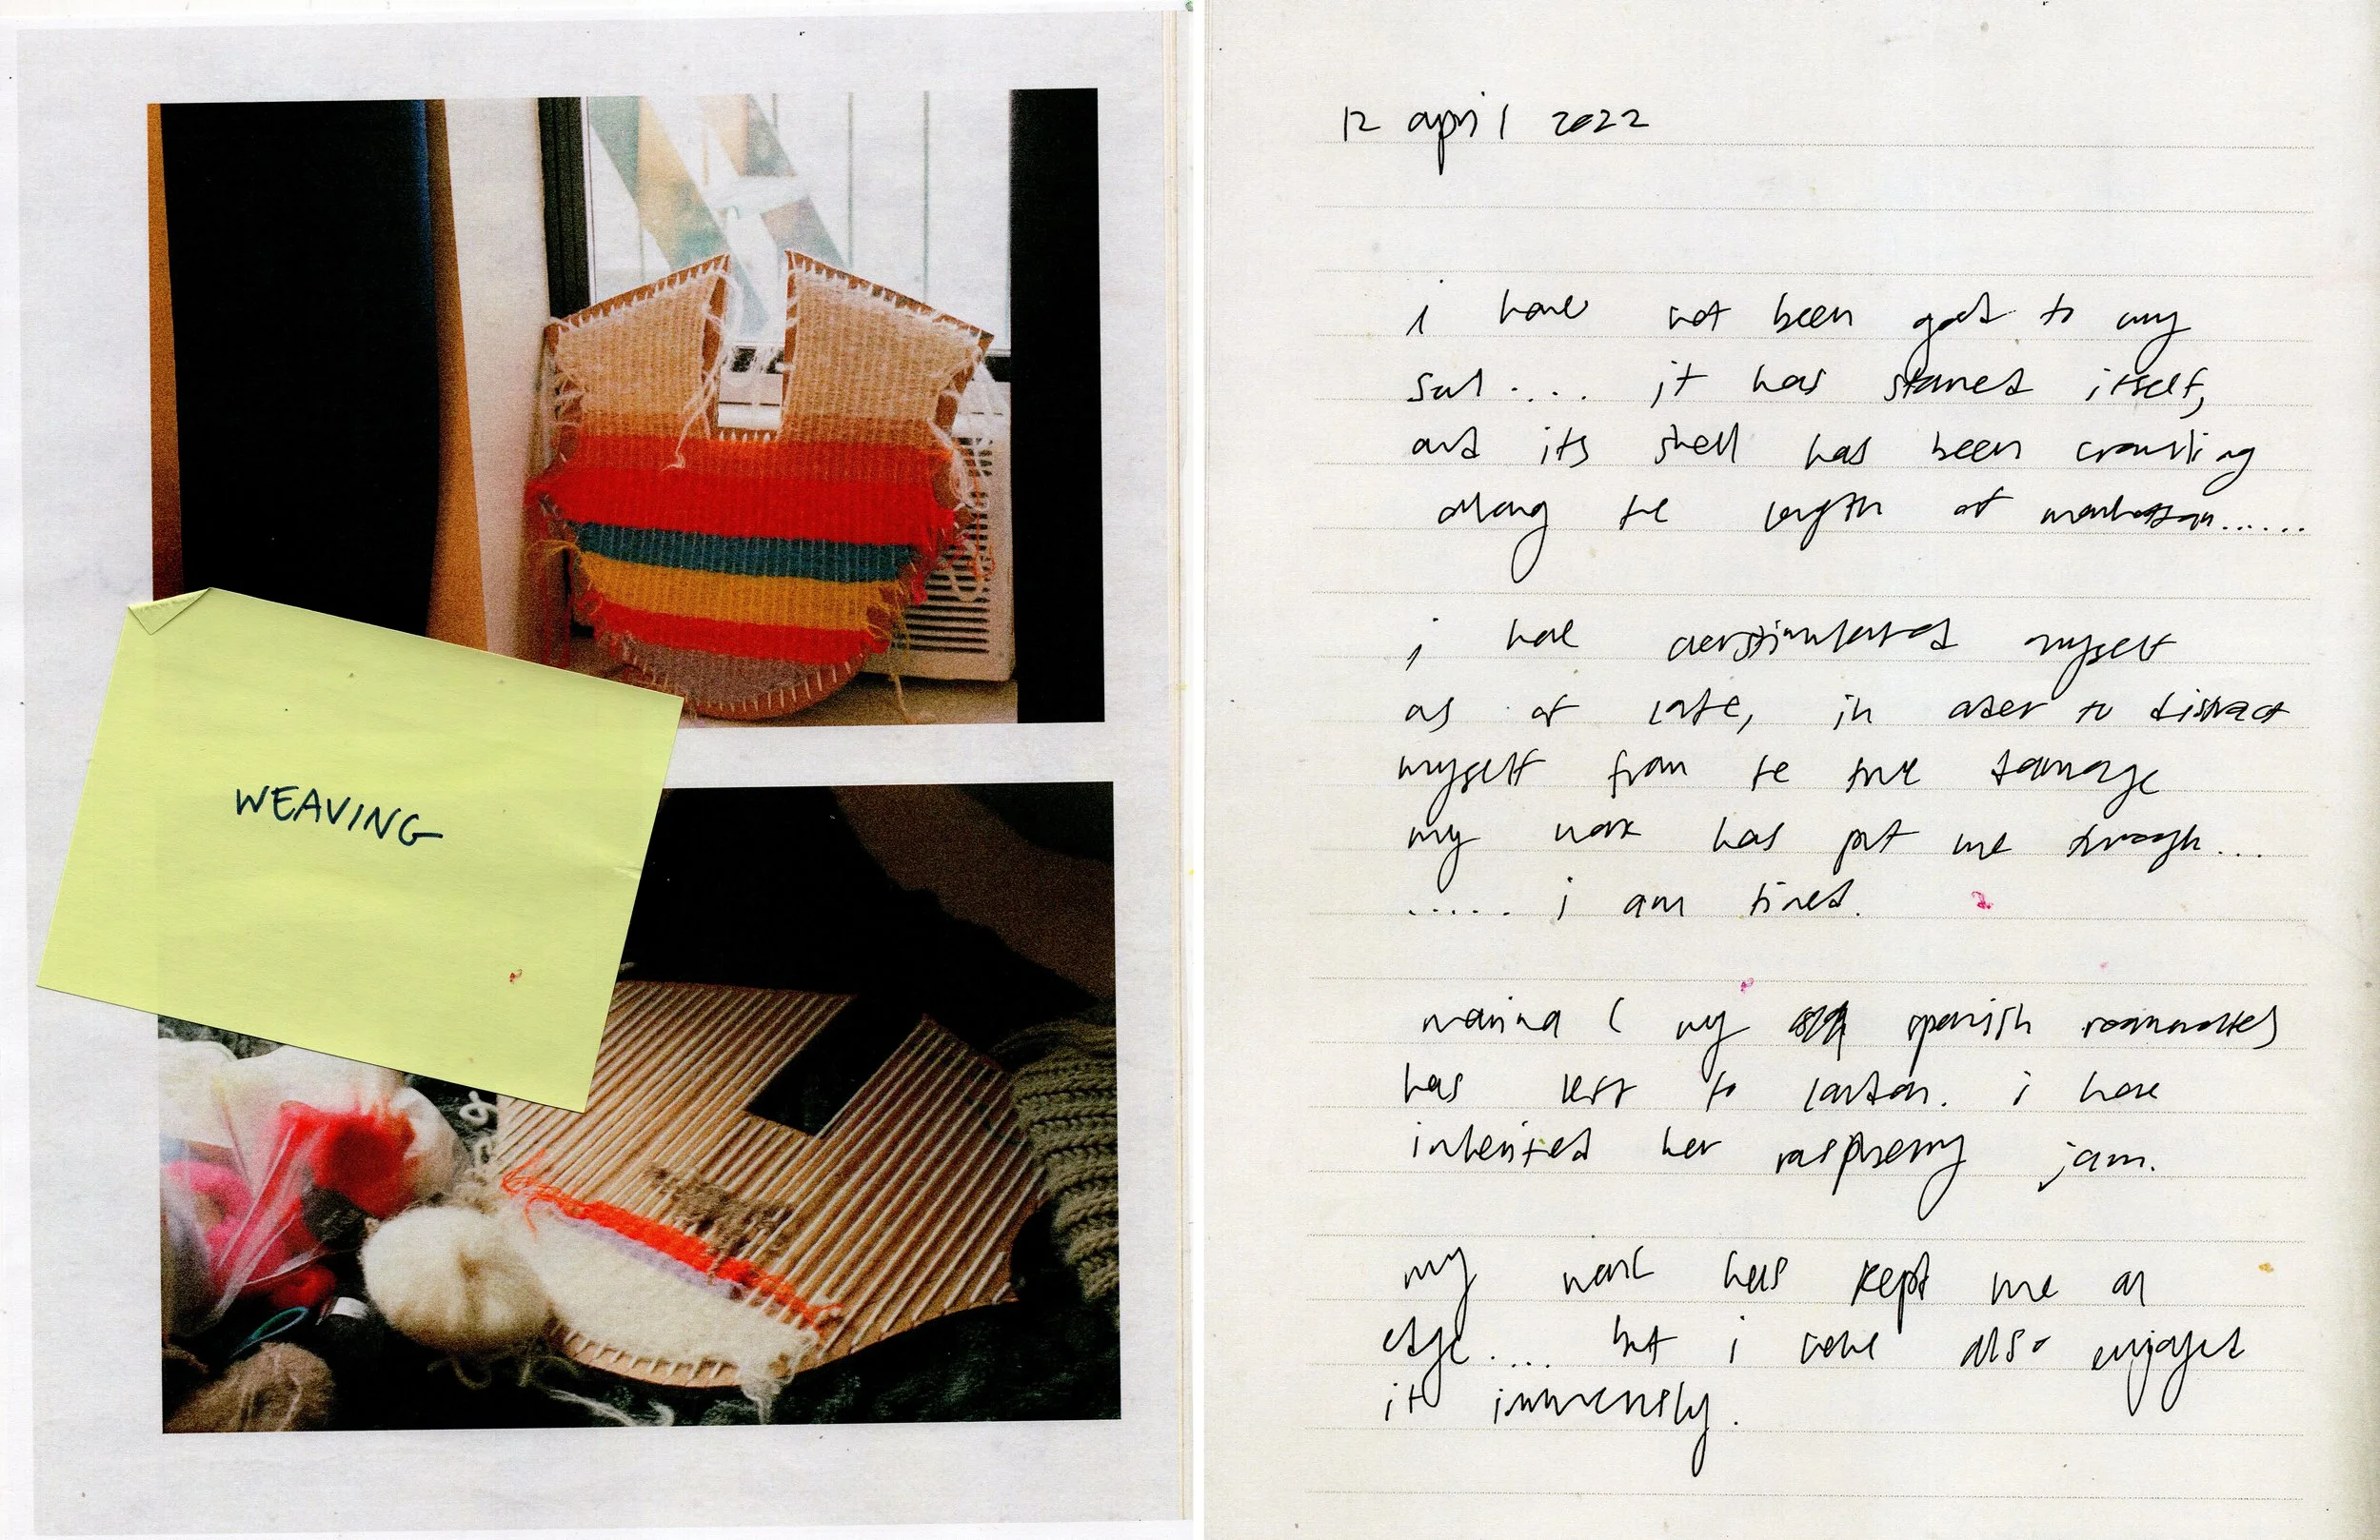 WEAVING
12 april 2022
i have not been good to my
soul .... it has starved itself,
and its shell has been crawling
along the length of manhattan......
i have overstimulated myself
as of late, in order to distract
myself from the true damage
my work has put me through...
..... i am tired.
marina ( my spanish roommate)
has left to london. i have
inherited her raspberry jam.
my work has kept me on
edge.... but i have also enjoyed
it immensely.